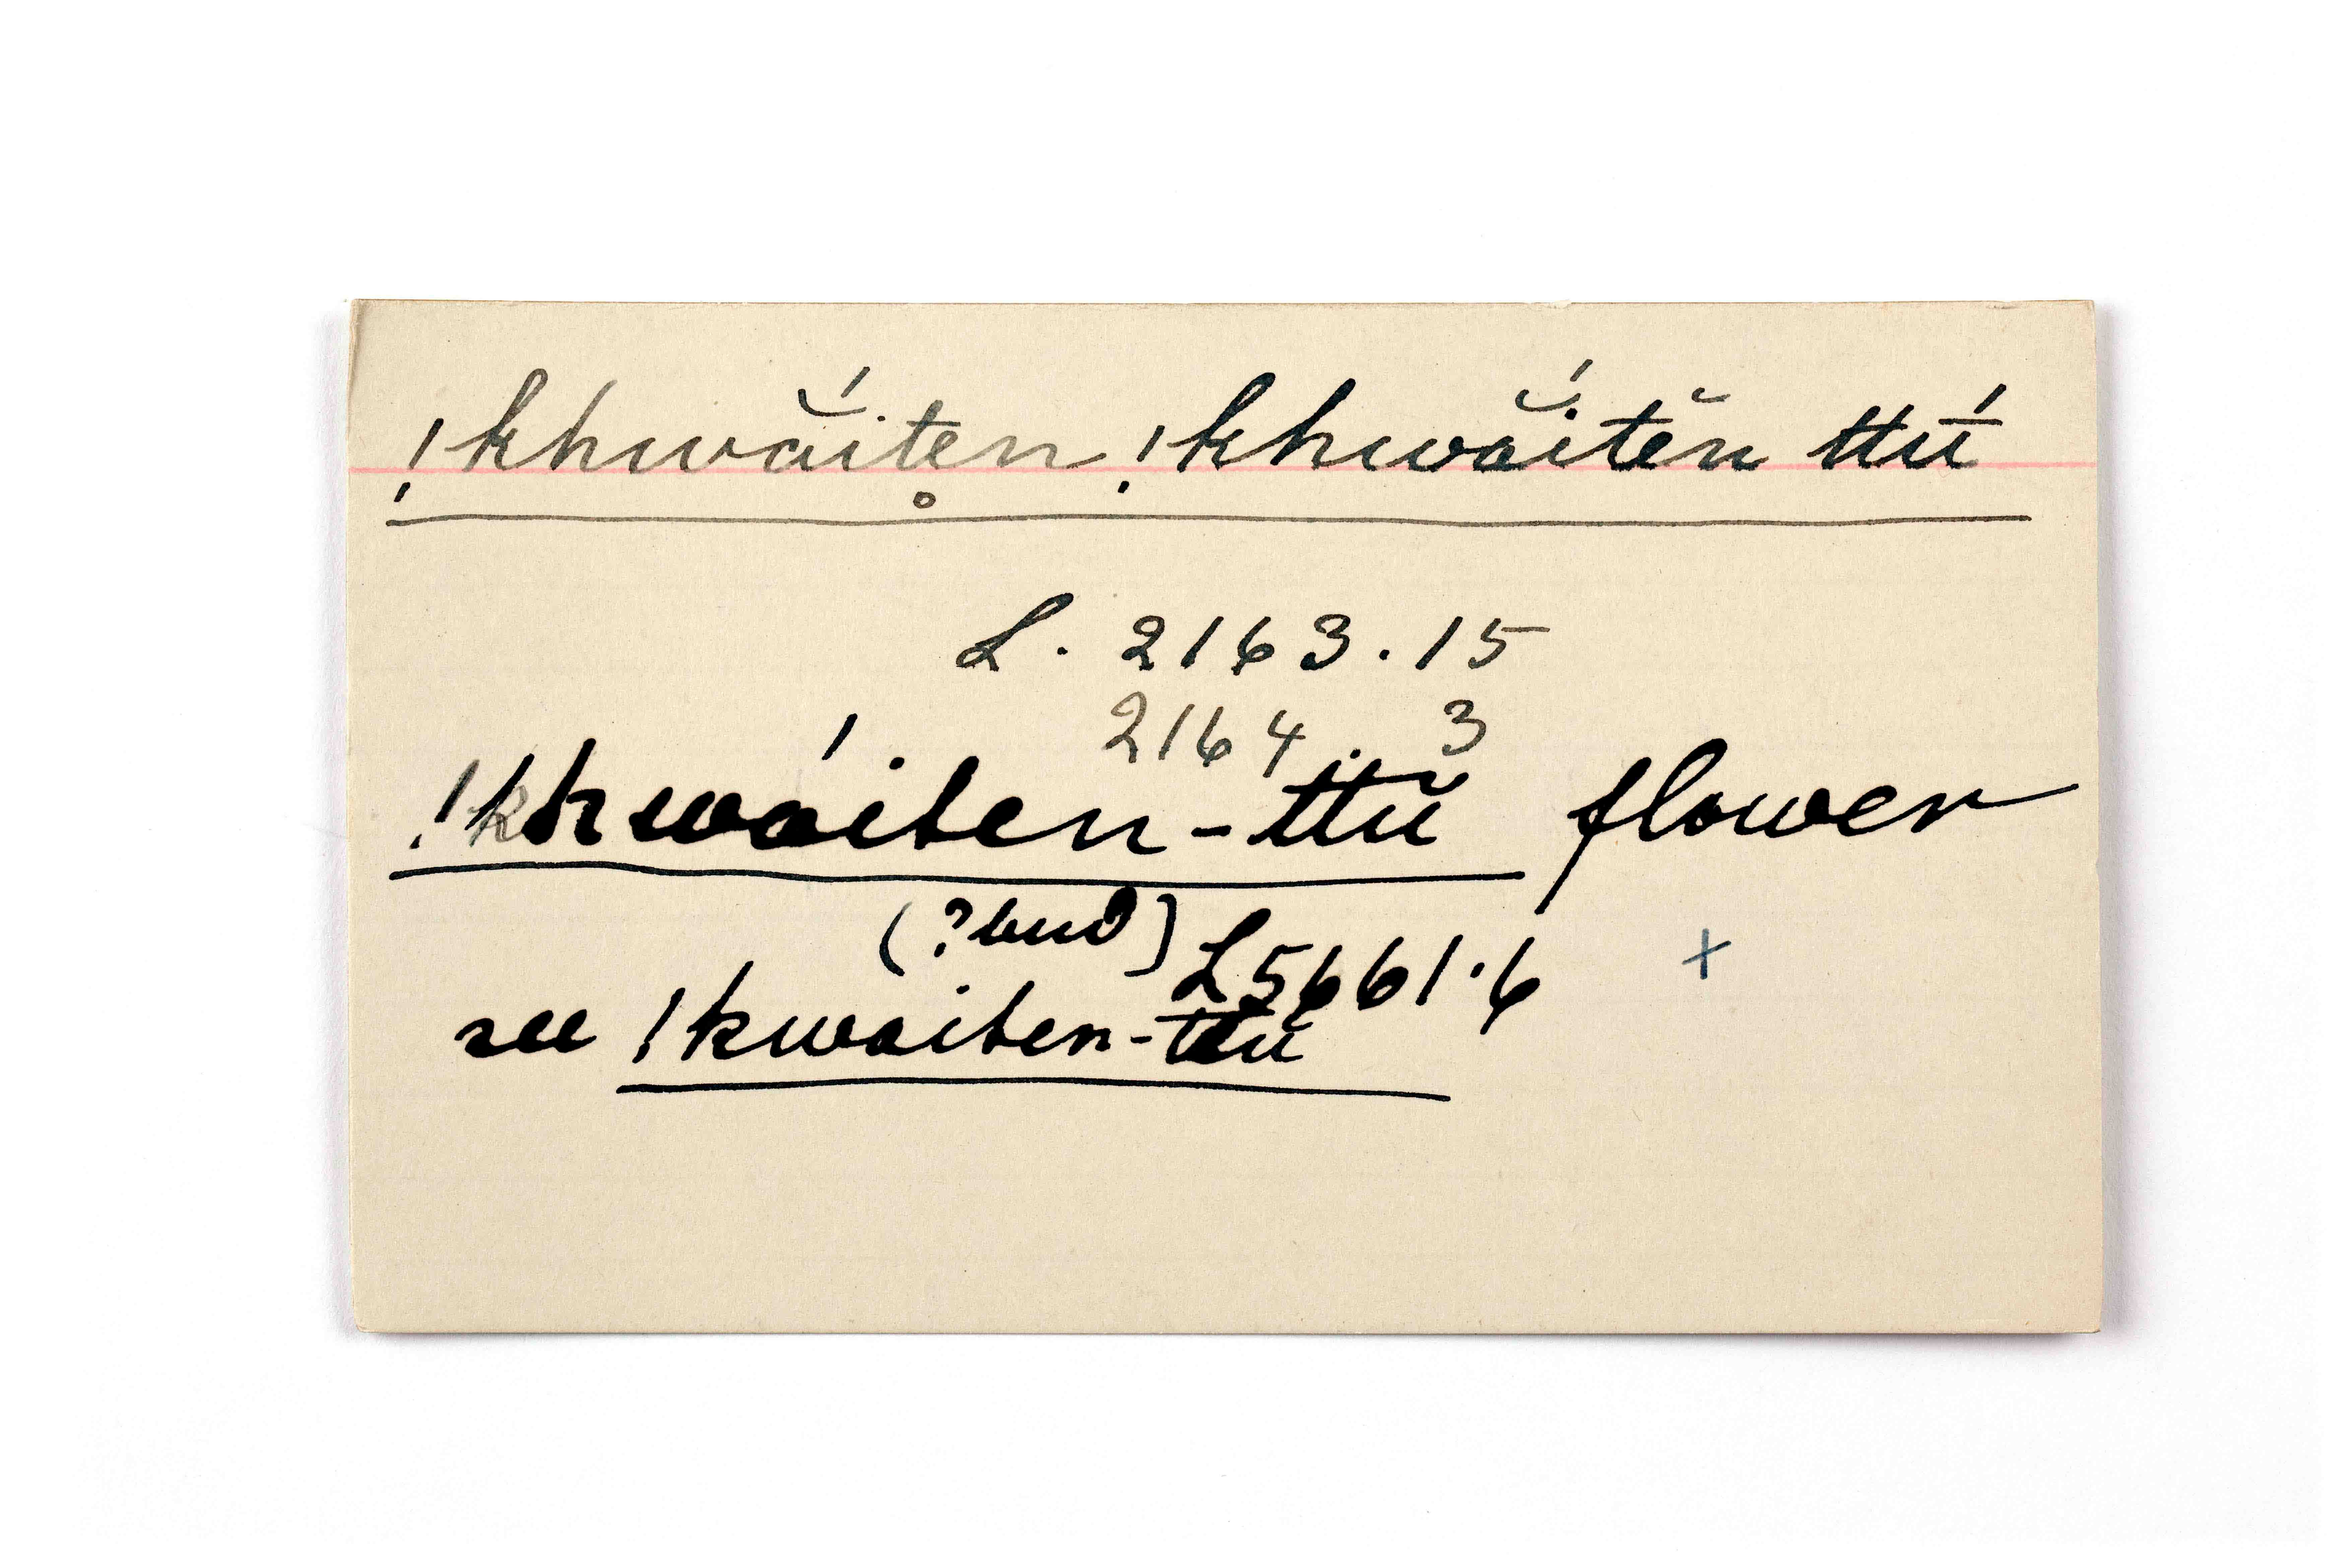 !khwā̆́itен̥ !khwā̆́itĕn ttū́
L. 2163.15
2164. 3
!khwáiten-ttŭ flower
(?bud) L5661.6 +
see !kwaiten-ttŭ